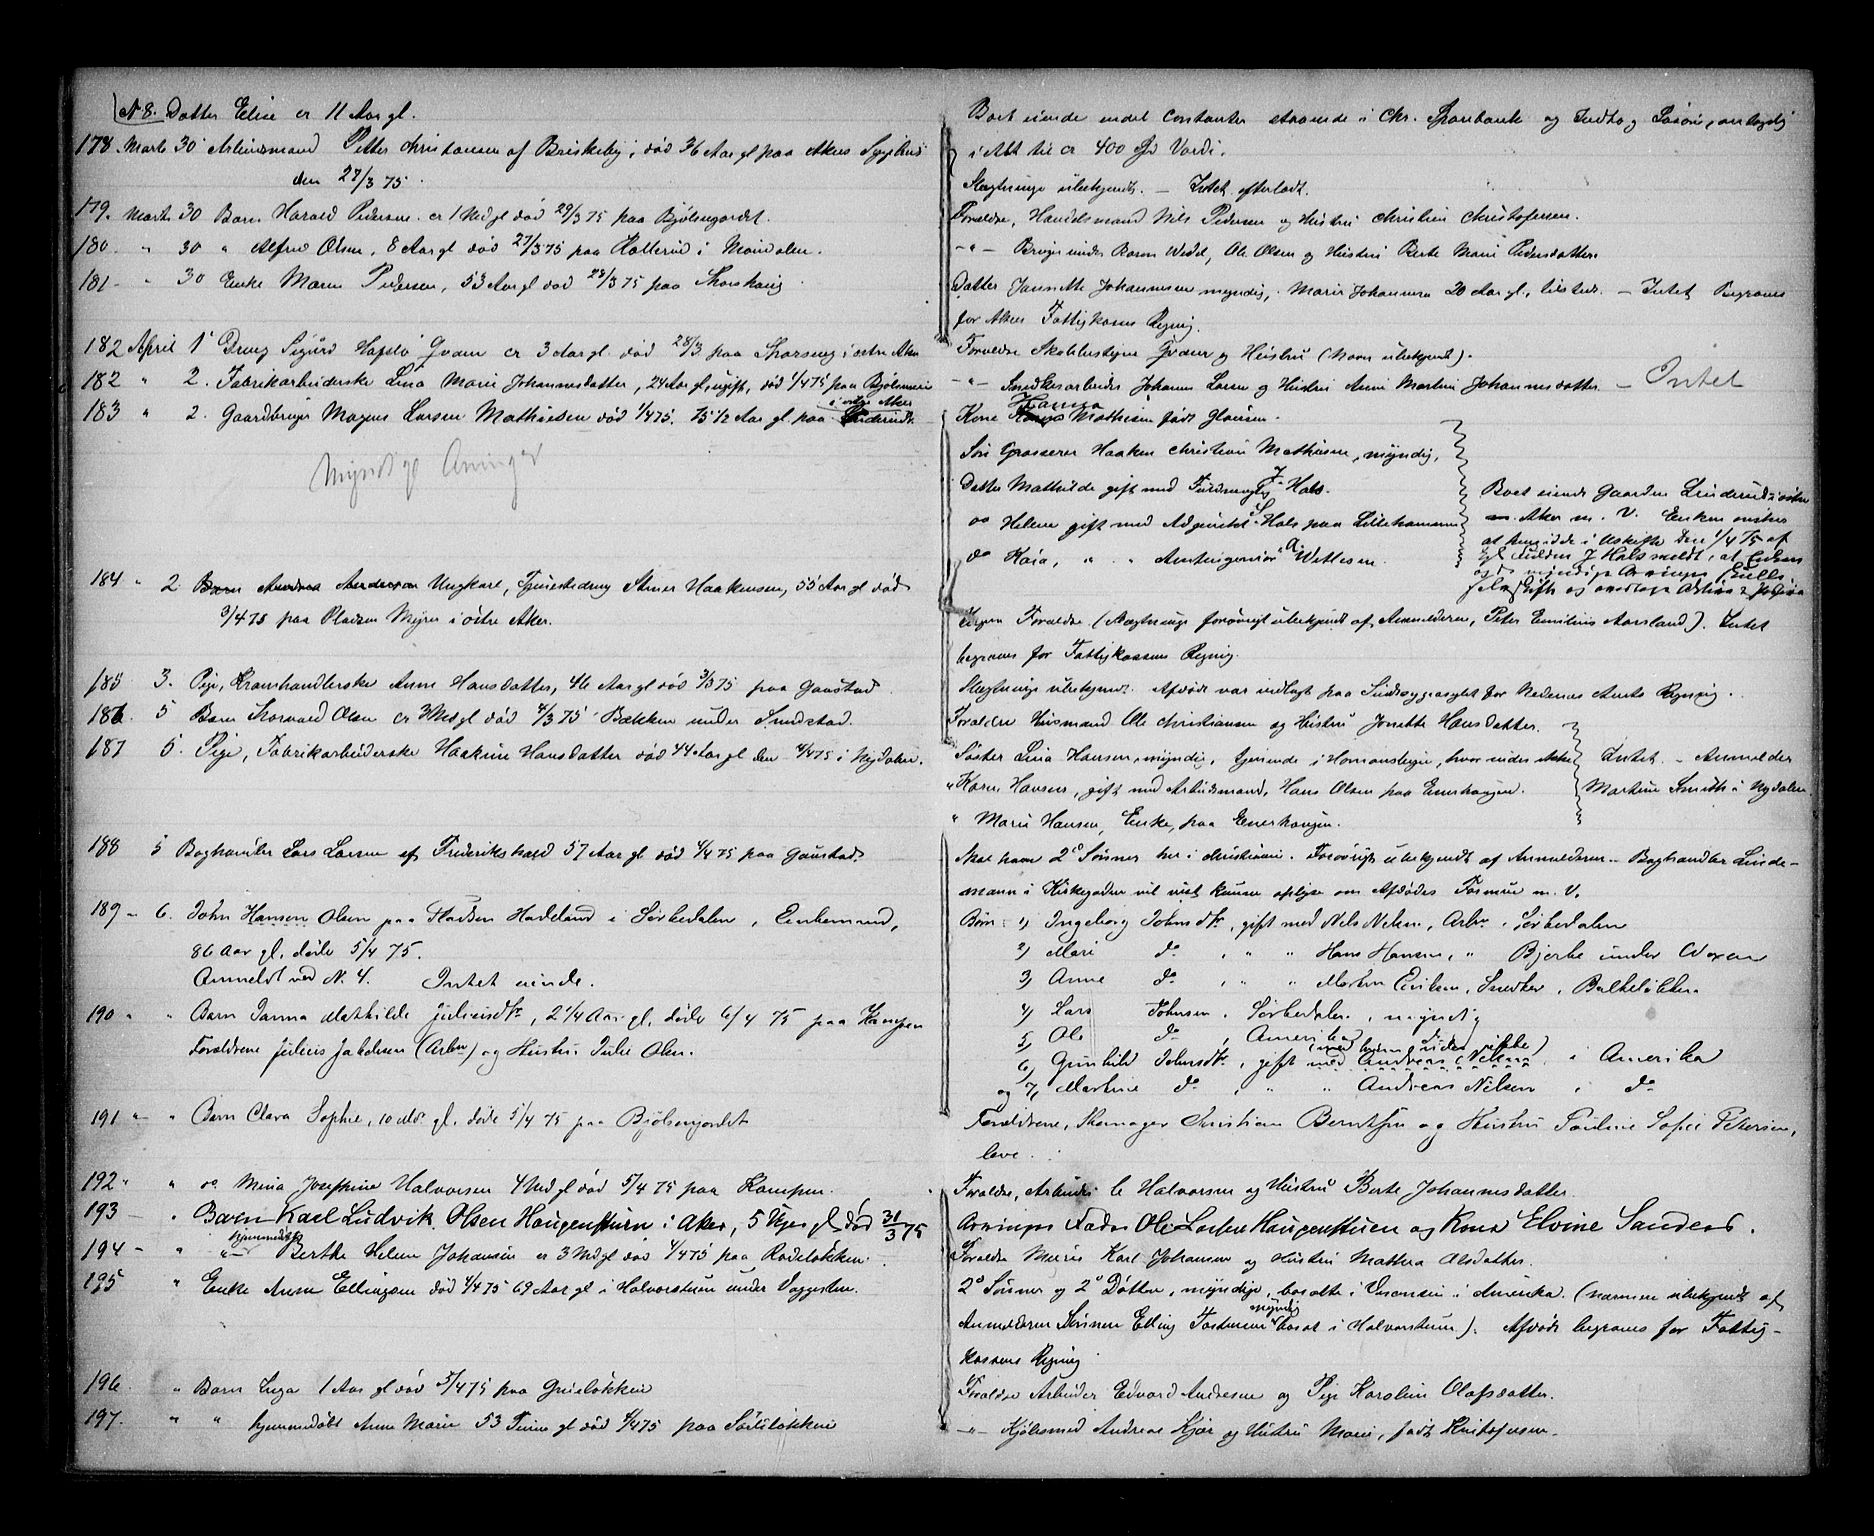 N 8. Datter Elise er 11 Aar gl.
178. Marts 30 Arbeidsmand Petter Christiansen af Briskeby, død 36 Aar gl paa Akers Sygehus
den 27/3 75.
179. Marts 30 Barn Harald Pedersen er 1 Md gl død 29/3 75 paa Bjølsengordet.
180. " 30 " Alfred Olsen, 8 Aar gl død 27/3 75 paa i Maridalen.
181 - " 30 Enke Maren Pedersen, 53 Aar gl død 28/3 75 paa
182 April 1 Dreng Sigurd Gram er 3 Aar gl. død 28/3 paa i østre Aker
182 " 2. Fabrikarbeiderske Lina Marie Johannesdatter, 24 Aar gl, ugift, død 1/4 75 paa Bjølsen
i østre Aker
183 " 2. Gaardbruger Magnus Larsen Mathiesen død 1/4 75. 75 1/2 Aar gl. paa Linderud.
Myndige Arvinger
184 " 2. Barn Andrea Andersen Ungkarl, Tjenestedreng Haakensen, 55 Aar gl død
3/4 75 paa Pladsen Myrer i østre Aker.
185 3. Pige, Kramhandlerske Anne Hansdatter, 46 Aar gl død 3/3 75 paa Gaustad.
186 5 Barn Thorvald Olsen er 3 Md gl død 4/3 75 Bakken under
187 5. Pige, Fabrikarbeiderske Haakine Hansdatter død 44 Aar gl den 4/4 75 i Nydalen.
188 5 Boghandler Lars Larsen af Frederikshald 57 Aar gl død 4/4 75 paa Gaustad
189 - 6. John Hansen Olsen paa Pladsen Hadeland i Sørkedalen, Enkemand,
86 Aar gl, døde 5/4 75.
Anmeldt ved N. 4. Intet eiende.
190 " " Barn Janna Mathilde Juliusdtr, 2 1/4 Aar gl, døde 6/4 75 paa Kampen
Forældrene Julius Jakobsen (Arbr) og Hustru Julie Olsen.
191 " " Barn Clara Sophie, 10 Md. gl. døde 5/4 75 paa Bjølsengordet
192 " " do Mina Josephine Halvorsen 4 Md gl død 5/4 75 paa Kampen.
193 - " Barn Karl Ludvik Olsen Haugenstuen i Aker, 5 Uger gl død 31/3 75
hjemmedøbt
194 - " " Berthe Helene Johansen er 3 Md gl død 4/4 75 paa Rodeløkken.
195 " Enke Anne Ellingsen død 4/4 75 69 Aar gl i Halvorstuen under Vaggesten.
196. " Barn Inga 1 Aar gl død 5/4 75 paa Grünløkken
197. " " hjemmedøbt Anne Marie 53 Timer gl død 4/4 75 paa
Boet eiende endel Contanter staaende i Chr. Sparebank og Indbo og Løsøre, antagelig
i Alt til ca 400 Spd Værdi.
Slægtninge ubekjendt. - Intet efterladt.
Forældre, Handelsmand Nils Pedersen og Hustru Christine Christofersen.
-"- Bruger under Baron Wedel, Ole Olsen og Hustru Berte Marie Pedersdatter.
Datter Jannette Johannesen myndig, Marie Johannesen 20 Aar gl., tilstede. - Intet Begraves
for Akers Fattigkasses Regning.
Forældre Gram og Hustru (Navn ubekjendt).
-"- Snedkerarbeider Johannes Larsen og Hustru Anne Martine Johannesdatter - Intet
Hanna
Kone Mathiesen født Clausen.
Søn Grosserer Haaken Christian Mathiesen, myndig,
Datter Mathilde gift med Fuldmægtig J. Hals.
do Helene gift med Adjunkt S. Hals paa Lillehammer
do Kaia, " " Amtsingeniør A. Willesen.
Boet eiende Gaarden Linderud i østre
Aker m. V. Enken ønsker
at hensidde i Uskifte. Den 1/4 75 af
J Hals meldt, at Enken
og de myndige Arvinger
selv skifte og overtage Activa & Passiva
Ingen Forældre (Slægtninge forøvrigt ubekjendt af Anmelderen, Peter Emilius Aarsland). Intet
begraves for Fattigkassens Regning.
Slægtninge ubekjendt. Afdøde var indlagt paa Sindssygeasylet for Nedenæs Amts Regning.
Forældre Husmand Ole Christiansen og Hustru Jonette Hansdatter.
Søster Lina Hansen, myndig, tjenende i Homansbyen, hvor vides ikke
" Karen Hansen, gift med Arbeidsmand, Hans Olsen paa Enerhaugen.
" Marie Hansen, Enke, paa Enerhaugen.
Intet. - Anmelder
Martine Smith i Nydalen
Skal have 2de Sønner her i Christiania. Forøvrigt ubekjendt af Anmelderen - Boghandler Linde-
mann i Kirkegaden vil vist kunne oplyse om Afdødes Formue m. V.
Børn: 1) Ingeborg Johnsdtr, gift med Nels Nelsen, Arbr. i Sørkedalen
2) Mari do , " " Hans Hansen, " Bjerke under Voxen
3) Anne do , " " Morten Eriksen, Snedker, Balkeløkken
4) Lars Johnsen, Sørkedalen, myndig
5) Ole do , Amerika
(med hvem vides ikke)
6) Gunhild Johnsdtr, gift med Andreas Nelsen i Amerika
og 7) Martine do , " " Andreas Nelsen i do
Forældrene, Skomager Christian Berntsen og Hustru Pauline Sofie Petersen,
leve.
Forældre, Arbeider C Halvorsen og Hustru Berte Johannesdatter.
Arvinger Fader Ole Larsen Haugenstuen og Kone Elvine Sanders.
Forældre Murer Karl Johansen og Hustru Mathea Olsdatter.
2de Sønner og 2de Døttre, myndige, bosatte i Amerika. (navnene ubekjendt af
myndig
Anmelderen Sønnen Elling Torstensen bosat i Halvorstuen). Afdøde begraves for Fattig-
kassens Regning.
Forældre Arbeider Edvard Andersen og Pige Karoline Olafsdatter.
-"- Andreas Kjær og Hustru Marie, født Kristofersen.